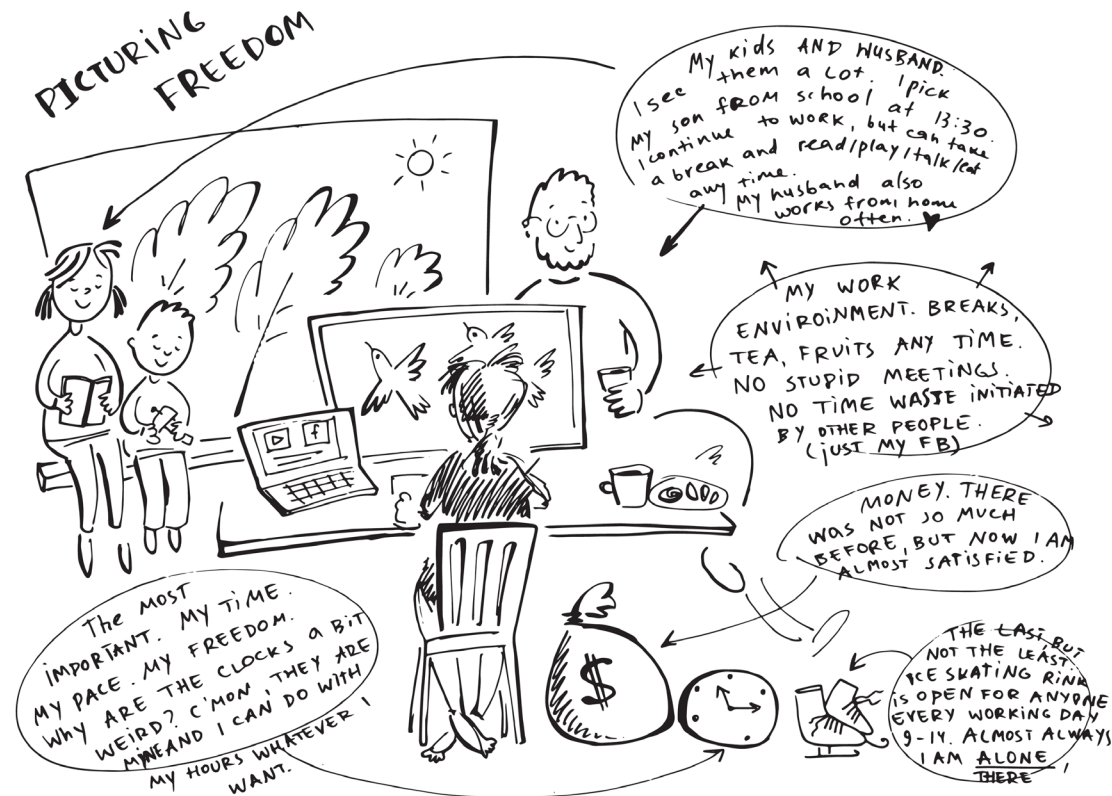 PICTURING
FREEDOM
My kids AND HUSBAND.
I see them a lot. I pick
my son FROM school at 13:30.
I continue to WORK, but can take
a break and read/play/talk/eat
any time.
My husband also
works from home
often.
MY WORK
ENVIROINMENT. BREAKS,
TEA, FRUITS ANY TIME.
NO STUPID MEETINGS.
NO TIME WASTE INITIATED
BY OTHER PEOPLE.
(just MY FB)
f
MONEY. THERE
WAS NOT SO MUCH
BEFORE, BUT NOW I AM
ALMOST SATISFIED.
The MOST
IMPORTANT. MY TIME.
MY PACE. MY FREEDOM.
WHY ARE THE CLOCKS a BIT
WEIRD? C'MON, THEY ARE
MINE AND I CAN DO WITH
MY HOURS WHATEVER I
WANT.
$
THE LAST BUT
NOT THE LEAST,
ICE SKATING RINK
is OPEN FOR ANYONE
EVERY WORKING DAY
9-14. ALMOST ALWAYS
I AM ALONE
THERE